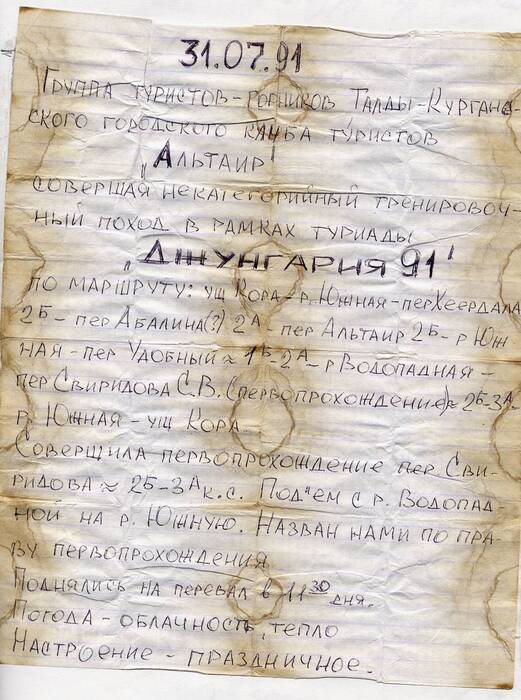 31.07.91
Группа туристов-горников Талды-Кургане-
ского городского клуба туристов
"Альтаир"
совершая некатегорийный тренировоч-
ный поход в рамках туриады
"Джунгария 91"
по маршруту: ущ Кора-р. Южная-пер Хеердала
2Б-пер Абалина(?) 2А-пер Альтаир 2Б-р Юж
ная-пер Удобный ≈ 1Б-2А-р Водопадная-
пер Свиридова С.В. (первопрохождение) ≈ 2Б-3А-
р. Южная-ущ Кора.
Совершила первопрохождение пер. Сви-
ридова ≈ 2Б-3А к.с. Под"ем с р. Водопад-
ной на р. Южную. Назван нами по пра-
ву первопрохождения
Поднялись на перевал в 11 30 дня.
Погода-облачность, тепло
Настроение-праздничное.